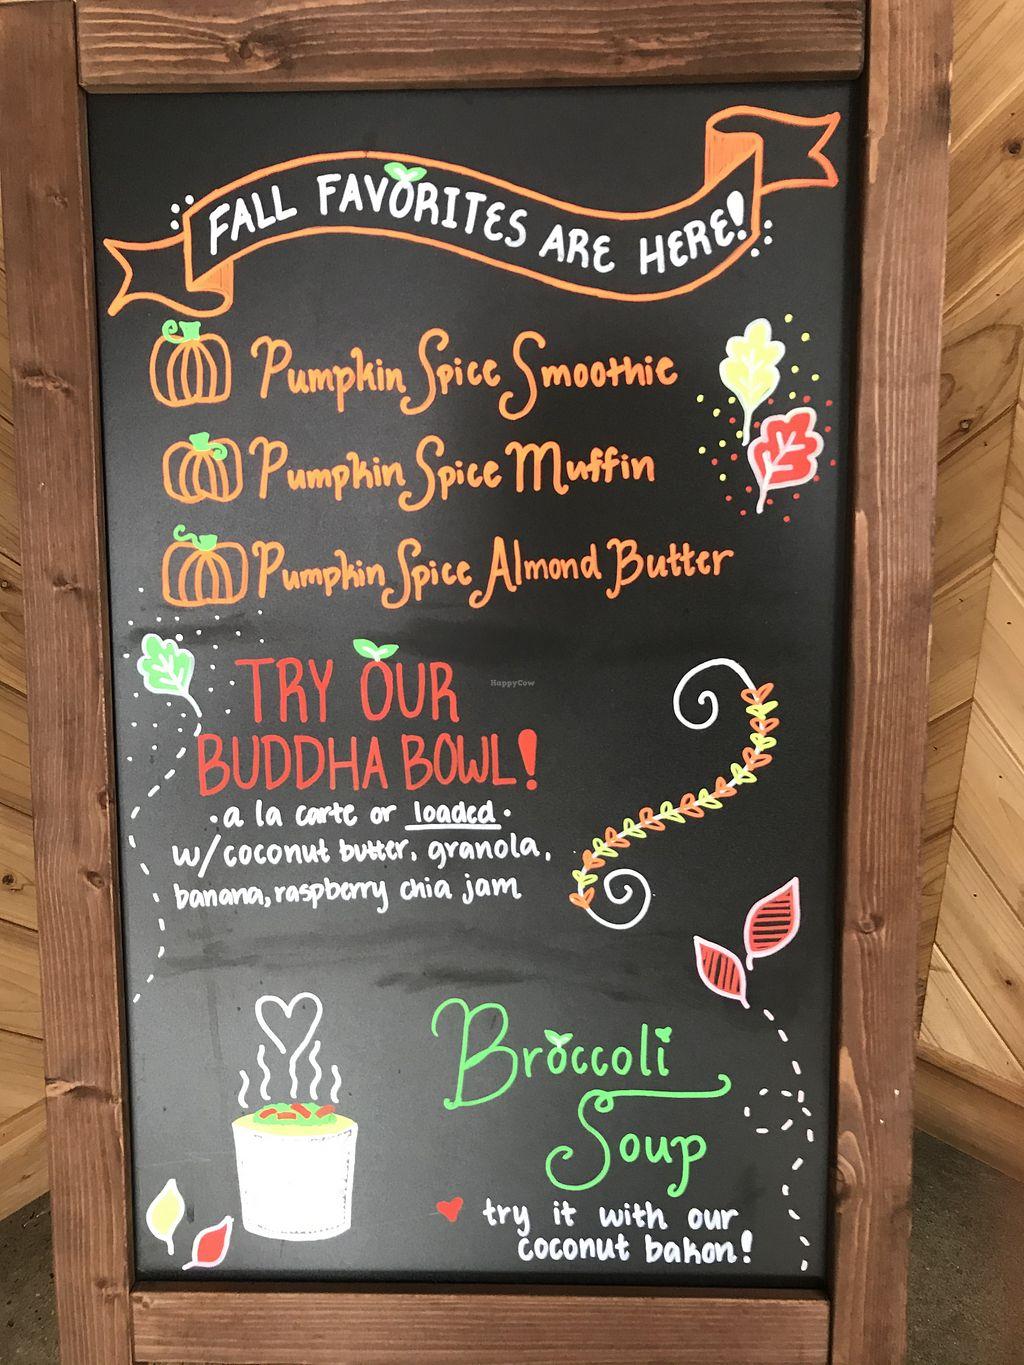 FALL FAVORITES ARE HERE!
Pumpkin Spice Smoothie
Pumpkin Spice Muffin
Pumpkin Spice Almond Butter
TRY OUR
BUDDHA BOWL!
· a la carte or loaded ·
w/ coconut butter, granola,
banana, raspberry chia jam
HappyCow
Broccoli
Soup
try it with our
coconut bakon!